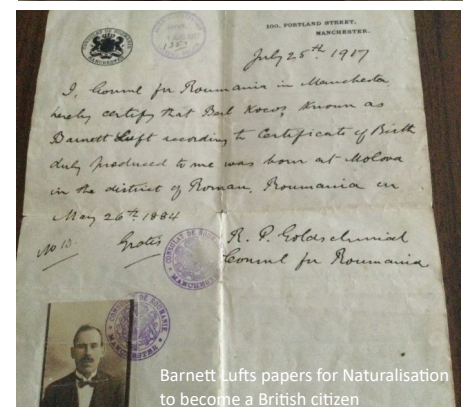 100, PORTLAND STREET,
MANCHESTER.
July 25th. 1917
I, Consul for Roumania in Manchester
hereby certify that Berl Kocos known as
Barnett Luft according to Certificate of Birth
duly produced to me was born at Molova
in the district of Roman, Roumania on
May 26th 1884
No 10. Gratis R. P. Goldschmidt
Consul for Roumania
CONSULAT DE ROUMANIE
MANCHESTER
CONSULAT DE ROUMANIE
MANCHESTER
Barnett Lufts papers for Naturalisation
to become a British citizen